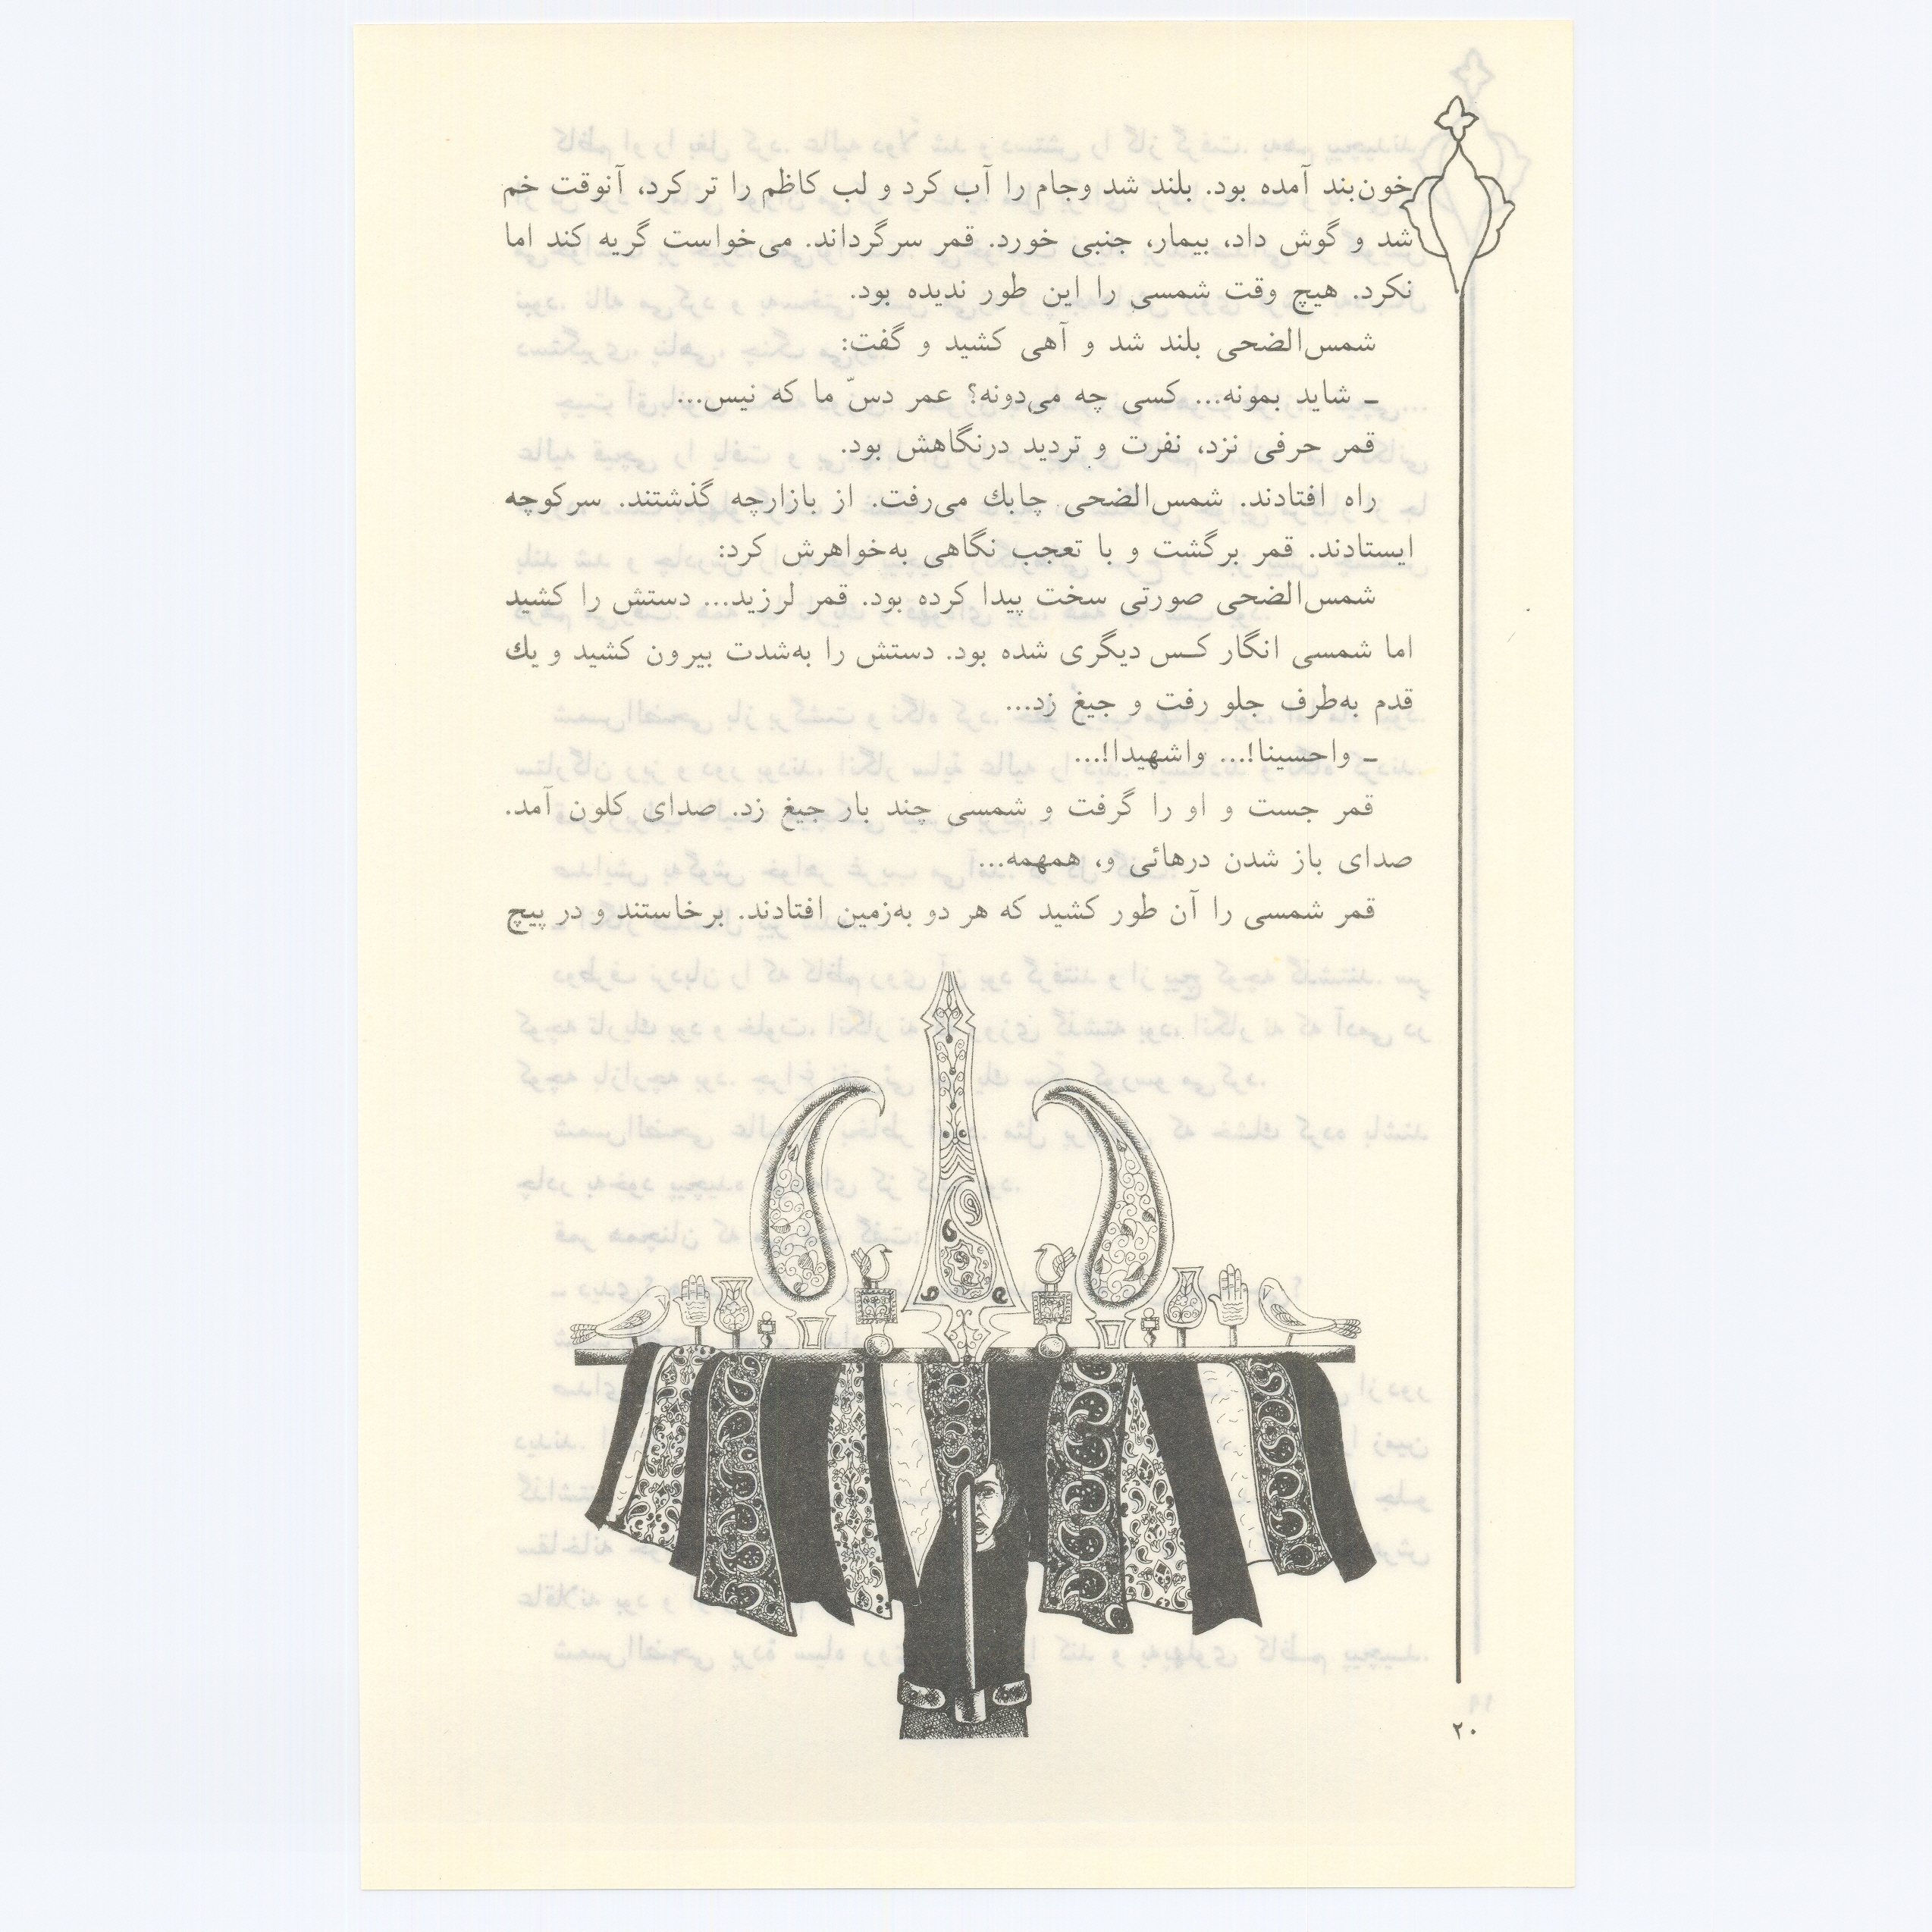 خون‌بند آمده بود. بلند شد وجام را آب کرد و لب کاظم را تر کرد، آنوقت خم
شد و گوش داد، بیمار، جنبی خورد. قمر سرگرداند. می‌خواست گریه کند اما
نکرد. هیچ وقت شمسی را این طور ندیده بود.
شمس‌الضحی بلند شد و آهی کشید و گفت:
ـ شاید بمونه... کسی چه می‌دونه؟ عمر دسّ ما که نیس...
قمر حرفی نزد، نفرت و تردید درنگاهش بود.
راه افتادند. شمس‌الضحی چابك می‌رفت. از بازارچه گذشتند. سرکوچه
ایستادند. قمر برگشت و با تعجب نگاهی به‌خواهرش کرد:
شمس‌الضحی صورتی سخت پیدا کرده بود. قمر لرزید... دستش را کشید
اما شمسی انگار کـس دیگری شده بود. دستش را به‌شدت بیرون کشید و یك
قدم به‌طرف جلو رفت و جیغ زد...
ـ واحسینا!... واشهیدا!...
قمر جست و او را گرفت و شمسی چند بار جیغ زد. صدای کلون آمد.
صدای باز شدن درهائی و، همهمه...
قمر شمسی را آن طور کشید که هر دو به‌زمین افتادند. برخاستند و در پیچ
۲۰